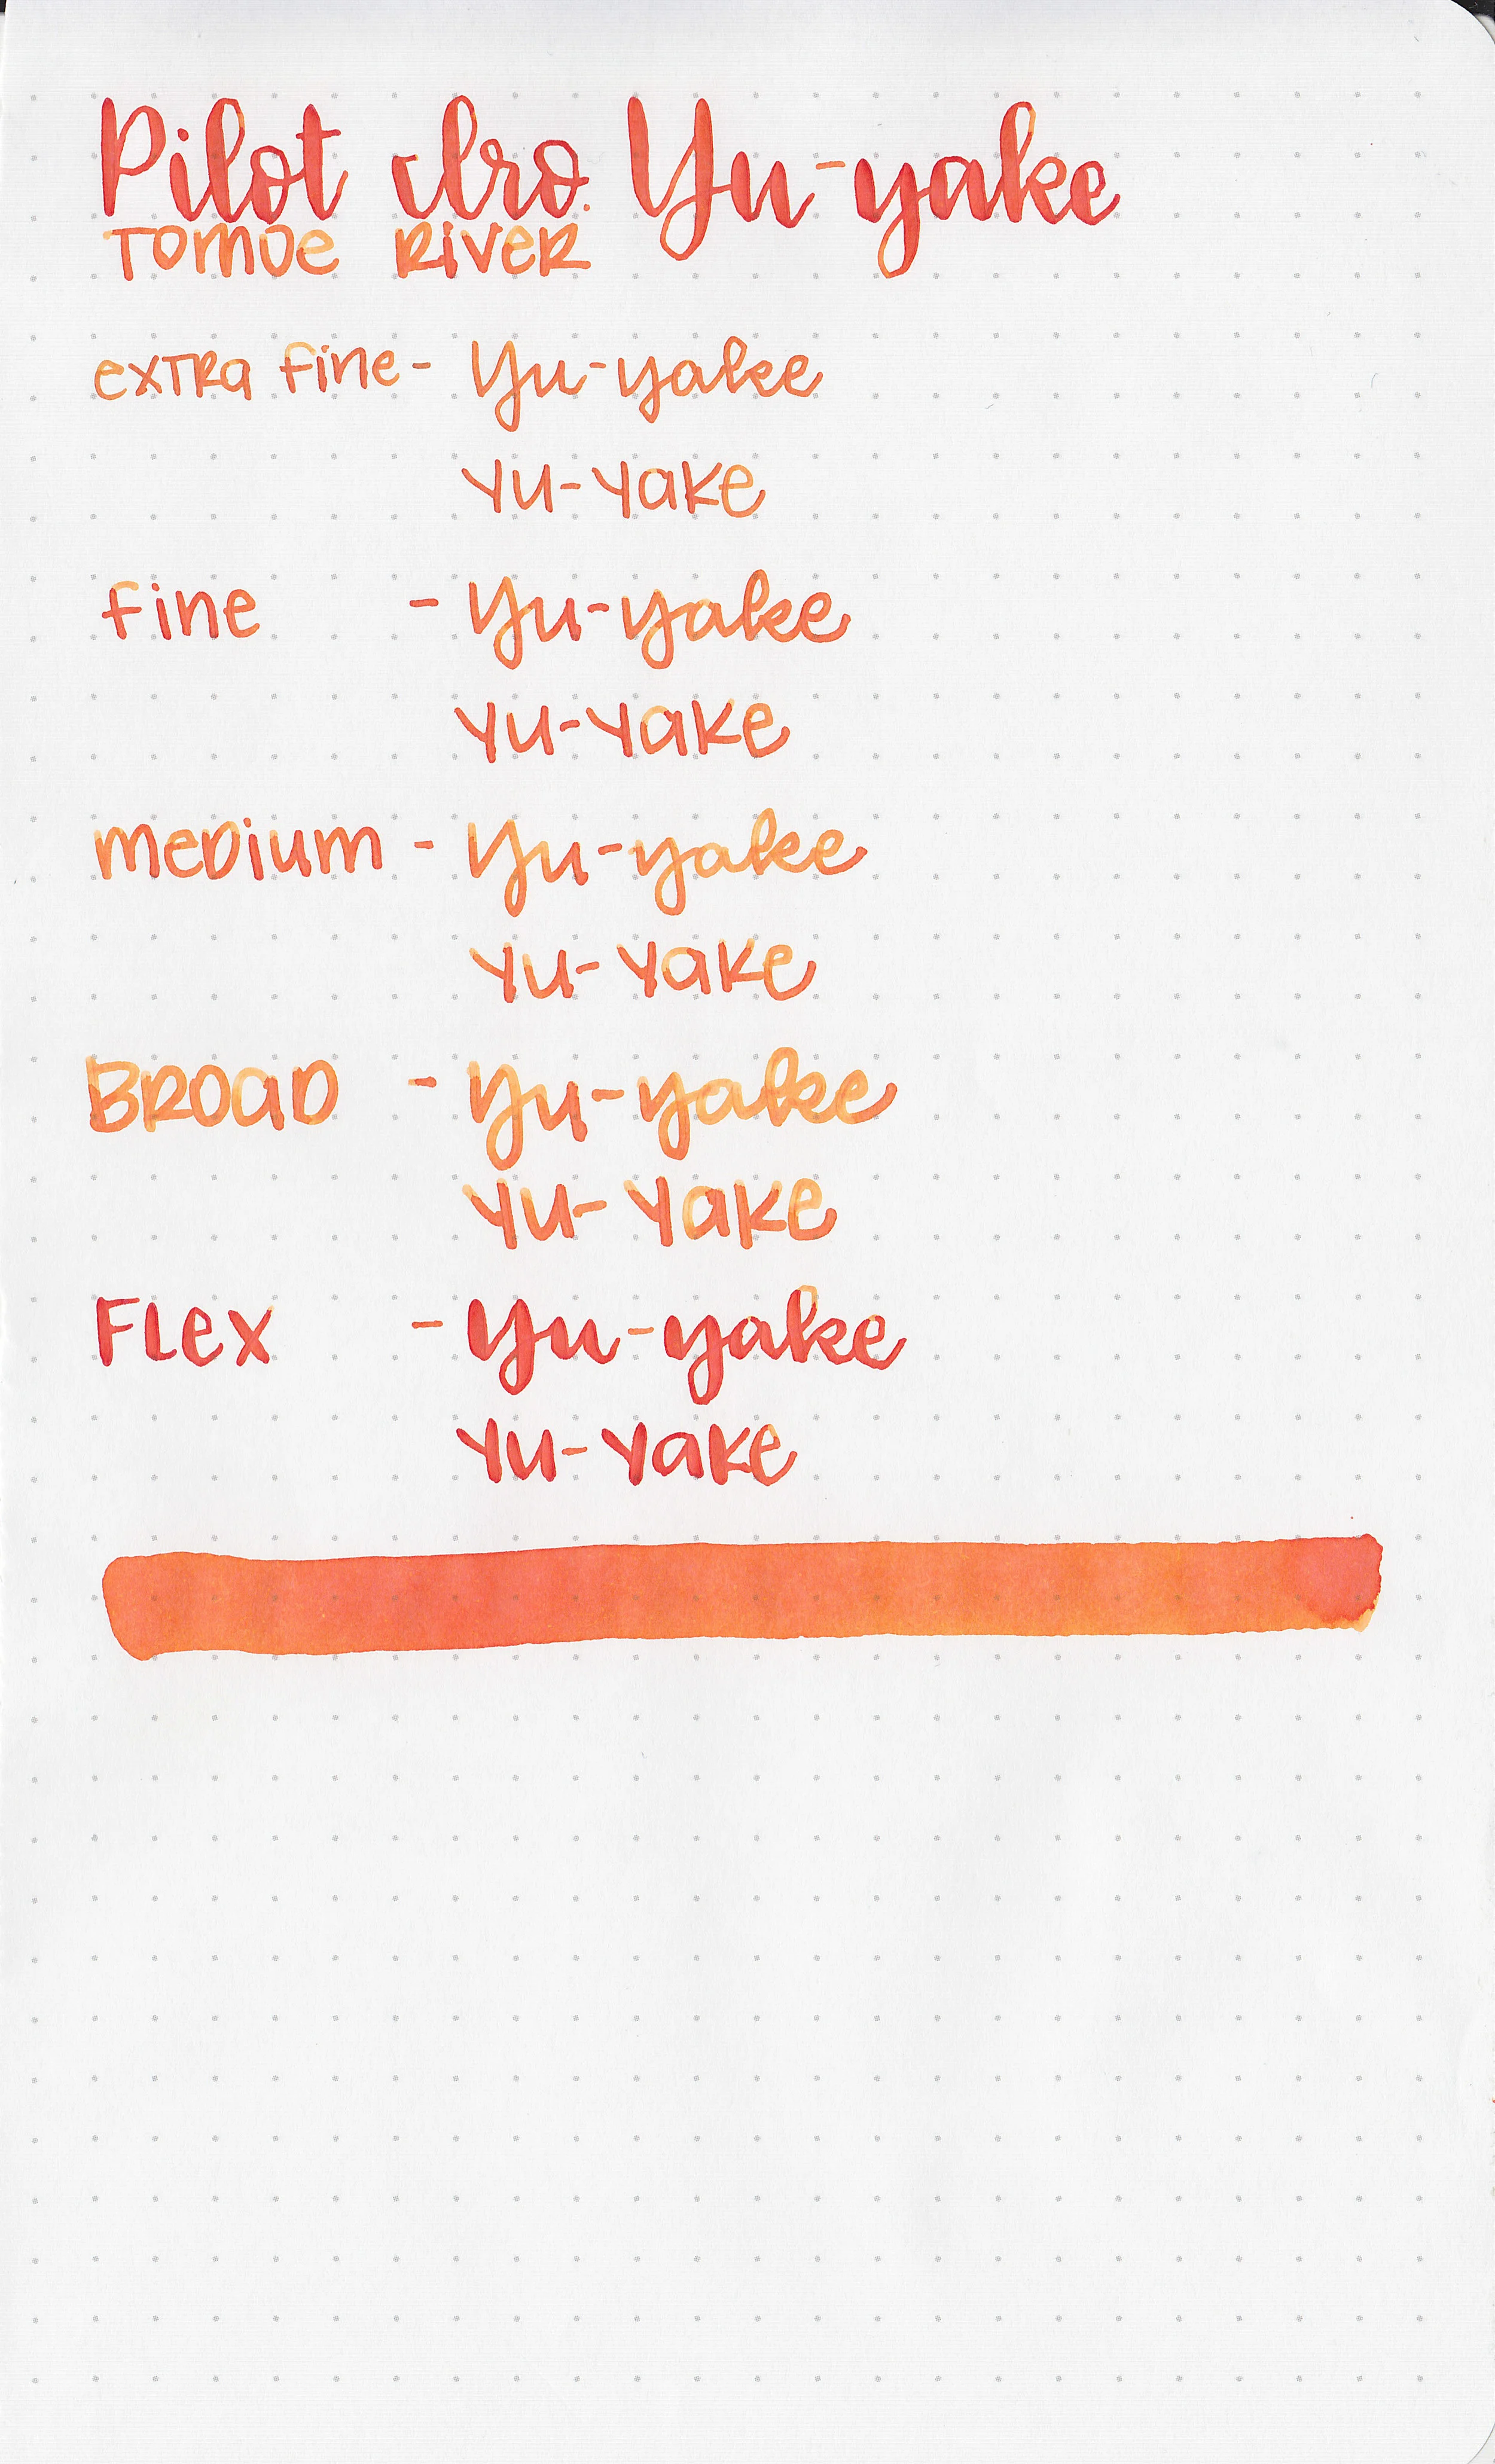 Pilot Iro. Yu-yake
Tomoe River
extra fine - Yu-yake
Yu-yake
fine - Yu-yake
Yu-yake
medium - Yu-yake
Yu-yake
Broad - Yu-yake
Yu-yake
Flex - Yu-yake
Yu-yake